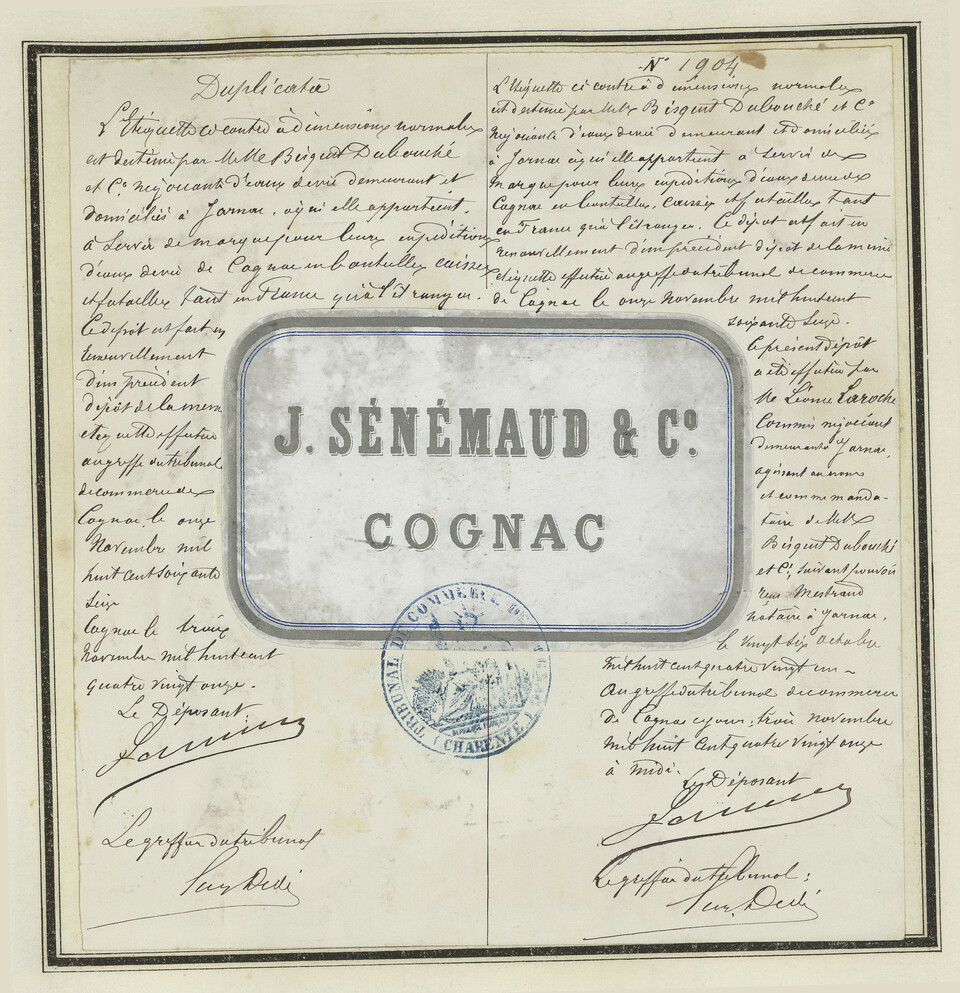 Duplicata
L'Etiquette ci contre à dimensions normales
est destinée par MMr Bisquit Dubouché
et Co négociants d'eaux de vie demeurant et
domiciliés à Jarnac, à qui elle appartient,
à servir de marque pour leurs expéditions
d'eaux de vie de Cognac en bouteilles caisses
et futailles tant en France qu'à l'étranger.
Ce dépôt est fait en
renouvellement
d'un précédent
dépôt de la même
étiquette effectué
au greffe du tribunal
de commerce de
Cognac le onze
Novembre mil
huit cent soixante
seize
Cognac le trois
Novembre mil huit cent
quatre vingt onze.
Le Déposant
Le greffier du tribunal
No 1904.
L'Etiquette ci contre à dimensions normales
est destinée par MMrs Bisquit Dubouché et Co
négociants d'eaux de vie demeurant et domiciliés
à Jarnac à qui elle appartient à servir de
marque pour leurs expéditions d'eaux de vie de
Cognac en bouteilles, caisses et futailles tant
en France qu'à l'étranger. Ce dépôt est fait en
renouvellement d'un précédent dépôt de la même
étiquette effectué au greffe du tribunal de commerce
de Cognac le onze Novembre mil huit cent
soixante seize.
Le présent dépôt
a été effectué par
Mr Léonce Laroche
Commis négociant
demeurant à Jarnac,
agissant au nom
et comme manda-
taire de MMrs
Bisquit Dubouché
et Co, suivant pouvoir
reçu Mestraud
notaire à Jarnac,
le vingt six octobre
mil huit cent quatre vingt un
Au greffe du tribunal de commerce
de Cognac ce jour, trois novembre
mil huit cent quatre vingt onze
à midi.
Le Déposant
Le greffier du tribunal:
J. SÉNÉMAUD & Co.
COGNAC
TRIBUNAL DE COMMERCE
(CHARENTE)